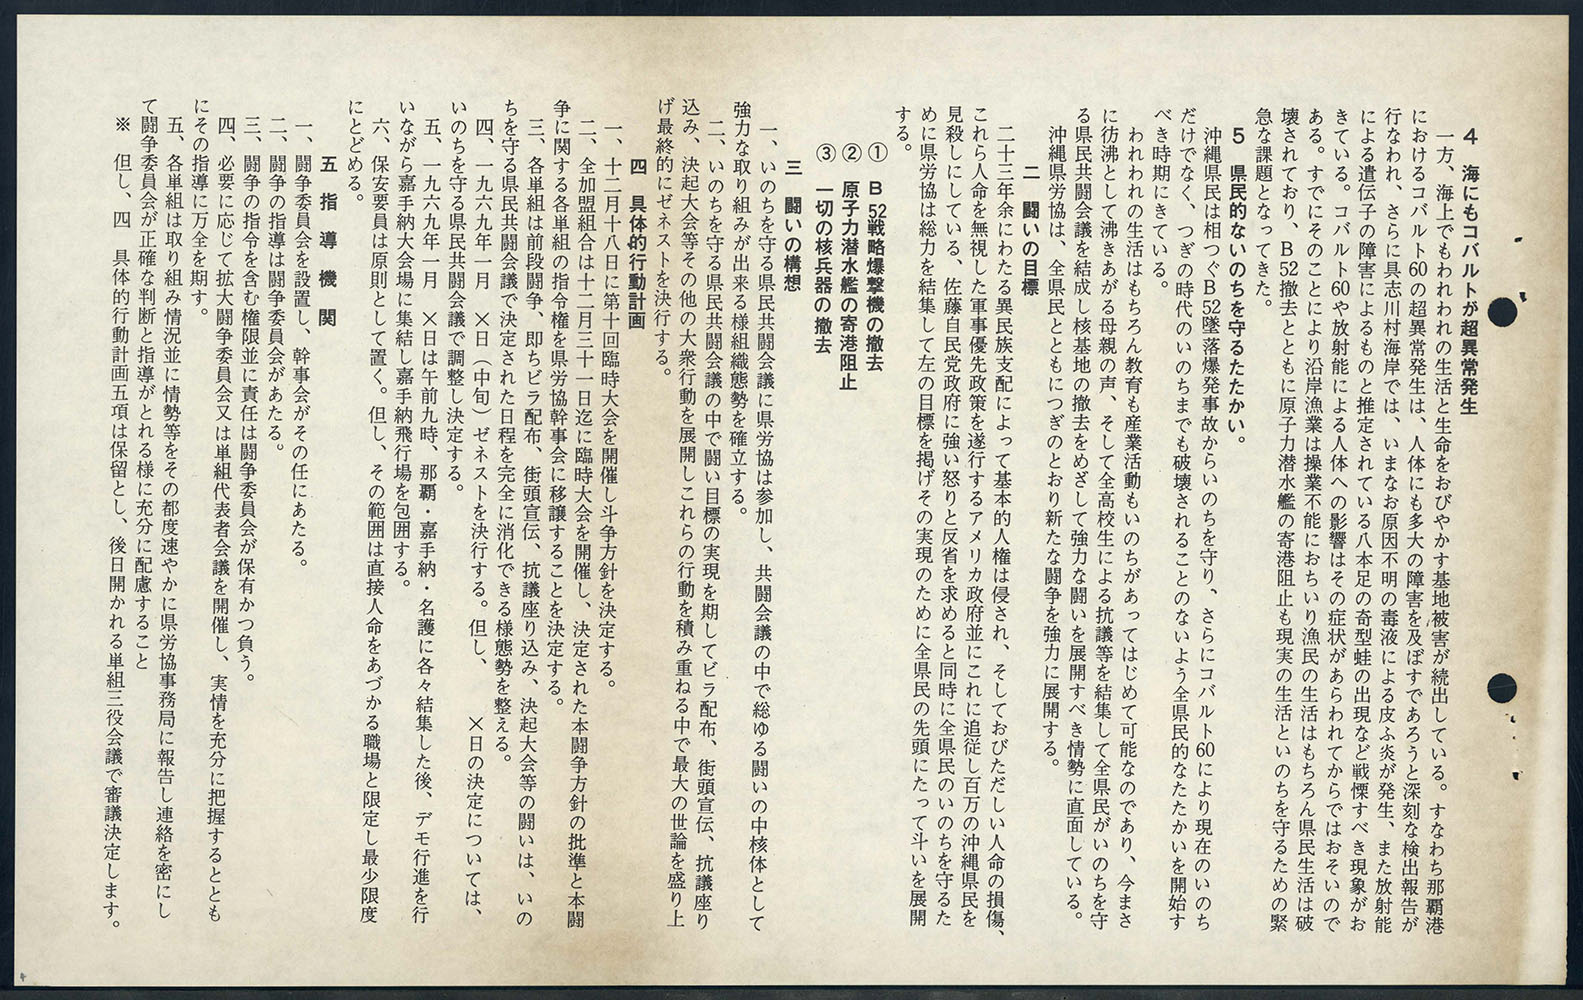 4　海にもコバルトが超異常発生
一方、海上でもわれわれの生活と生命をおびやかす基地被害が続出している。すなわち那覇港
におけるコバルト60の超異常発生は、人体にも多大の障害を及ぼすであろうと深刻な検出報告が
行なわれ、さらに具志川村海岸では、いまなお原因不明の毒液による皮ふ炎が発生、また放射能
による遺伝子の障害によるものと推定されている八本足の奇型蛙の出現など戦慄すべき現象がお
きている。コバルト60や放射能による人体への影響はその症状があらわれてからではおそいので
ある。すでにそのことにより沿岸漁業は操業不能におちいり漁民の生活はもちろん県民生活は破
壊されており、B52撤去とともに原子力潜水艦の寄港阻止も現実の生活といのちを守るための緊
急な課題となってきた。
5　県民的ないのちを守るたたかい。
沖縄県民は相つぐB52墜落爆発事故からいのちを守り、さらにコバルト60により現在のいのち
だけでなく、つぎの時代のいのちまでも破壊されることのないよう全県民的なたたかいを開始す
べき時期にきている。
われわれの生活はもちろん教育も産業活動もいのちがあってはじめて可能なのであり、今まさ
に彷沸として沸きあがる母親の声、そして全高校生による抗議等を結集して全県民がいのちを守
る県民共闘会議を結成し核基地の撤去をめざして強力な闘いを展開すべき情勢に直面している。
沖縄県労協は、全県民とともにつぎのとおり新たな闘争を強力に展開する。
二　闘いの目標
二十三年余にわたる異民族支配によって基本的人権は侵され、そしておびただしい人命の損傷、
これら人命を無視した軍事優先政策を遂行するアメリカ政府並にこれに追従し百万の沖縄県民を
見殺しにしている、佐藤自民党政府に強い怒りと反省を求めると同時に全県民のいのちを守るた
めに県労協は総力を結集して左の目標を掲げその実現のために全県民の先頭にたって斗いを展開
する。
① B52戦略爆撃機の撤去
② 原子力潜水艦の寄港阻止
③ 一切の核兵器の撤去
三　闘いの構想
一、いのちを守る県民共闘会議に県労協は参加し、共闘会議の中で総ゆる闘いの中核体として
強力な取り組みが出来る様組織態勢を確立する。
二、いのちを守る県民共闘会議の中で闘い目標の実現を期してビラ配布、街頭宣伝、抗議座り
込み、決起大会等その他の大衆行動を展開しこれらの行動を積み重ねる中で最大の世論を盛り上
げ最終的にゼネストを決行する。
四　具体的行動計画
一、十二月十八日に第十回臨時大会を開催し斗争方針を決定する。
二、全加盟組合は十二月三十一日迄に臨時大会を開催し、決定された本闘争方針の批準と本闘
争に関する各単組の指令権を県労協幹事会に移譲することを決定する。
三、各単組は前段闘争、即ちビラ配布、街頭宣伝、抗議座り込み、決起大会等の闘いは、いの
ちを守る県民共闘会議で決定された日程を完全に消化できる様態勢を整える。
四、一九六九年一月　×日（中旬）ゼネストを決行する。但し、　×日の決定については、
いのちを守る県民共闘会議で調整し決定する。
五、一九六九年一月　×日は午前九時、那覇・嘉手納・名護に各々結集した後、デモ行進を行
いながら嘉手納大会場に集結し嘉手納飛行場を包囲する。
六、保安要員は原則として置く。但し、その範囲は直接人命をあづかる職場と限定し最少限度
にとどめる。
五　指導機関
一、闘争委員会を設置し、幹事会がその任にあたる。
二、闘争の指導は闘争委員会があたる。
三、闘争の指令を含む権限並に責任は闘争委員会が保有かつ負う。
四、必要に応じて拡大闘争委員会又は単組代表者会議を開催し、実情を充分に把握するととも
にその指導に万全を期す。
五、各単組は取り組み情況並に情勢等をその都度速やかに県労協事務局に報告し連絡を密にし
て闘争委員会が正確な判断と指導がとれる様に充分に配慮すること
※　但し、四　具体的行動計画五項は保留とし、後日開かれる単組三役会議で審議決定します。